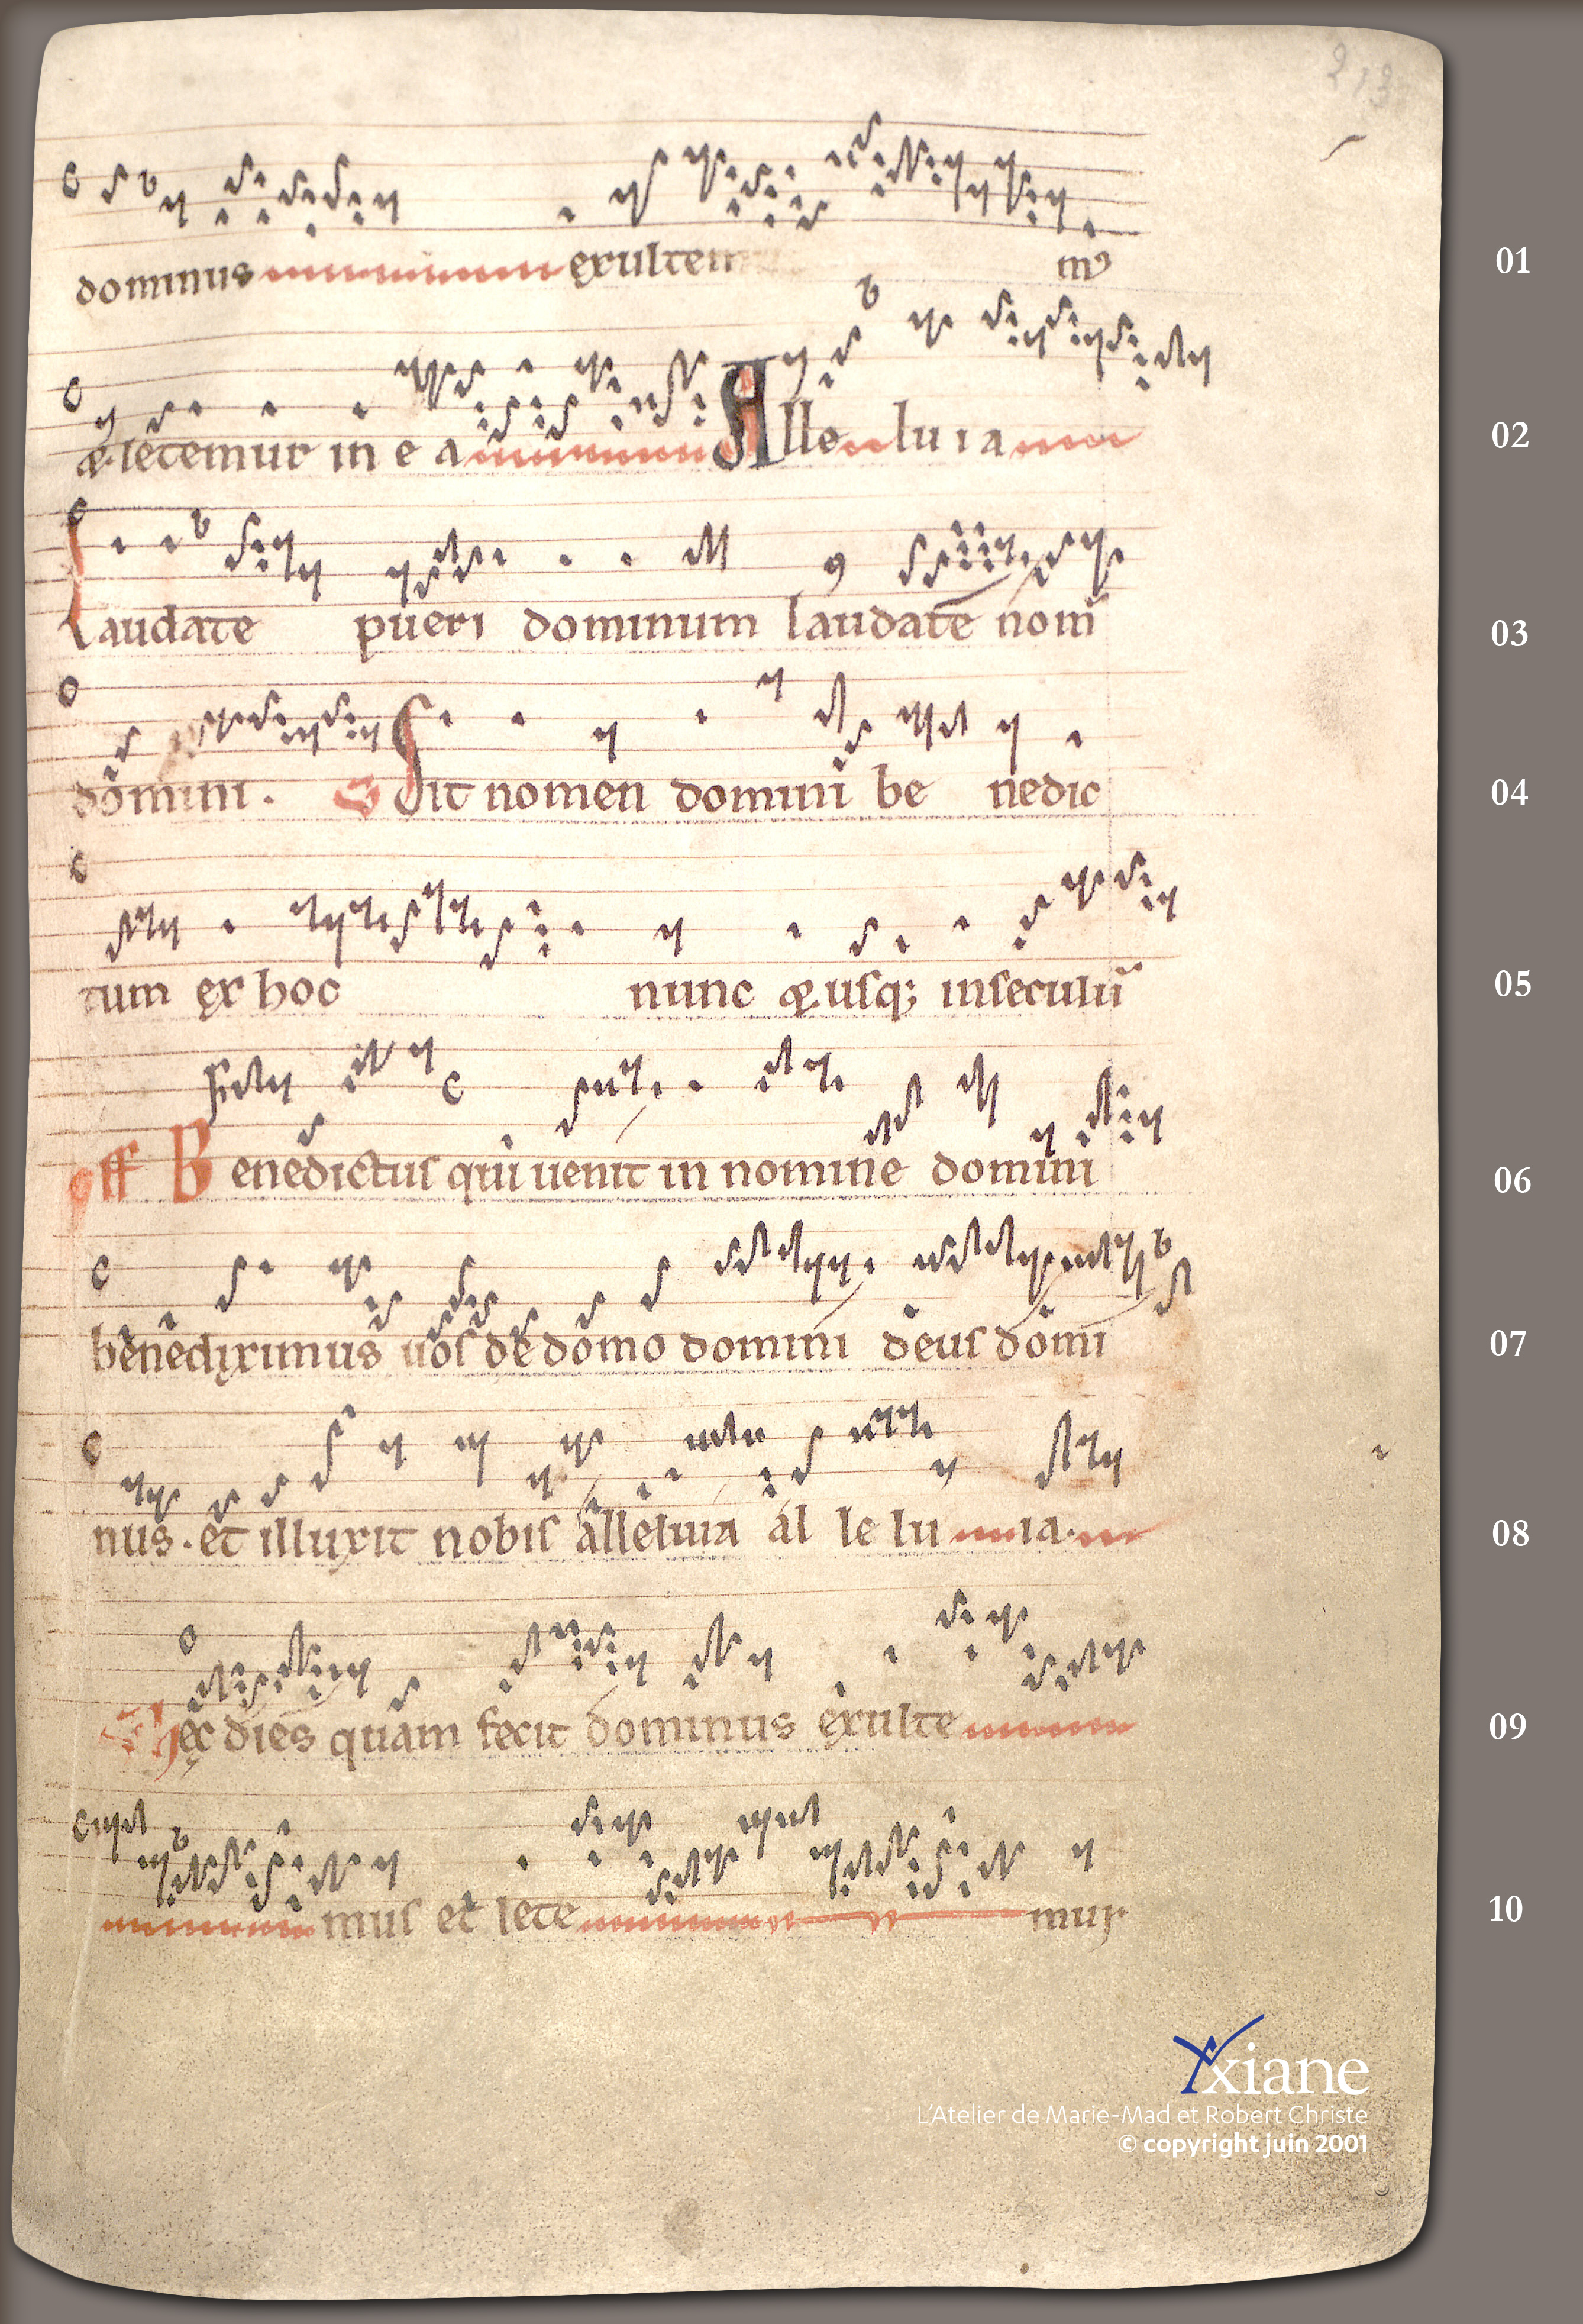 213
dominus exultem m9
01
& letemur in e a Alle lu ia
02
Laudate pueri dominum laudate nom̄
03
domini. Sit nomen domini be nedic
04
tum ex hoc nunc & usq; inseculū
05
off Benedictus qui uenit in nomine domini
06
benediximus uos de domo domini deus domi
07
nus. et illuxit nobis alleluia al le lu ia.
08
hęc dies quam fecit dominus exulte
09
mus et lete mur
10
xiane
L'Atelier de Marie-Mad et Robert Christe
© copyright juin 2001